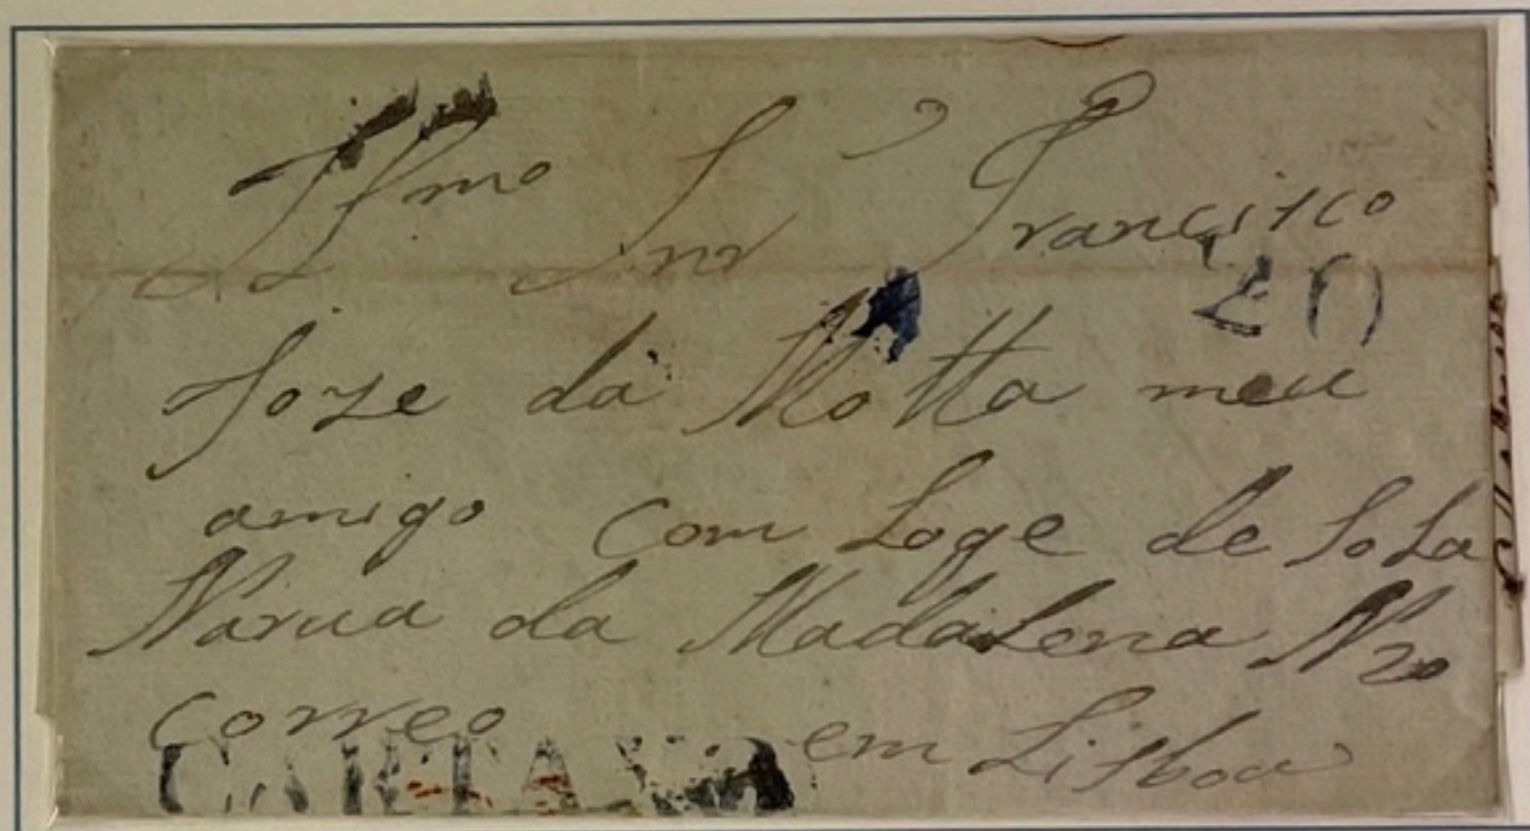 Illmo Snr Francisco
20
Joze da Motta meu
amigo com Loge de Sola
Narua da Madalena N 20
correo em Lisboa
CARTAXO